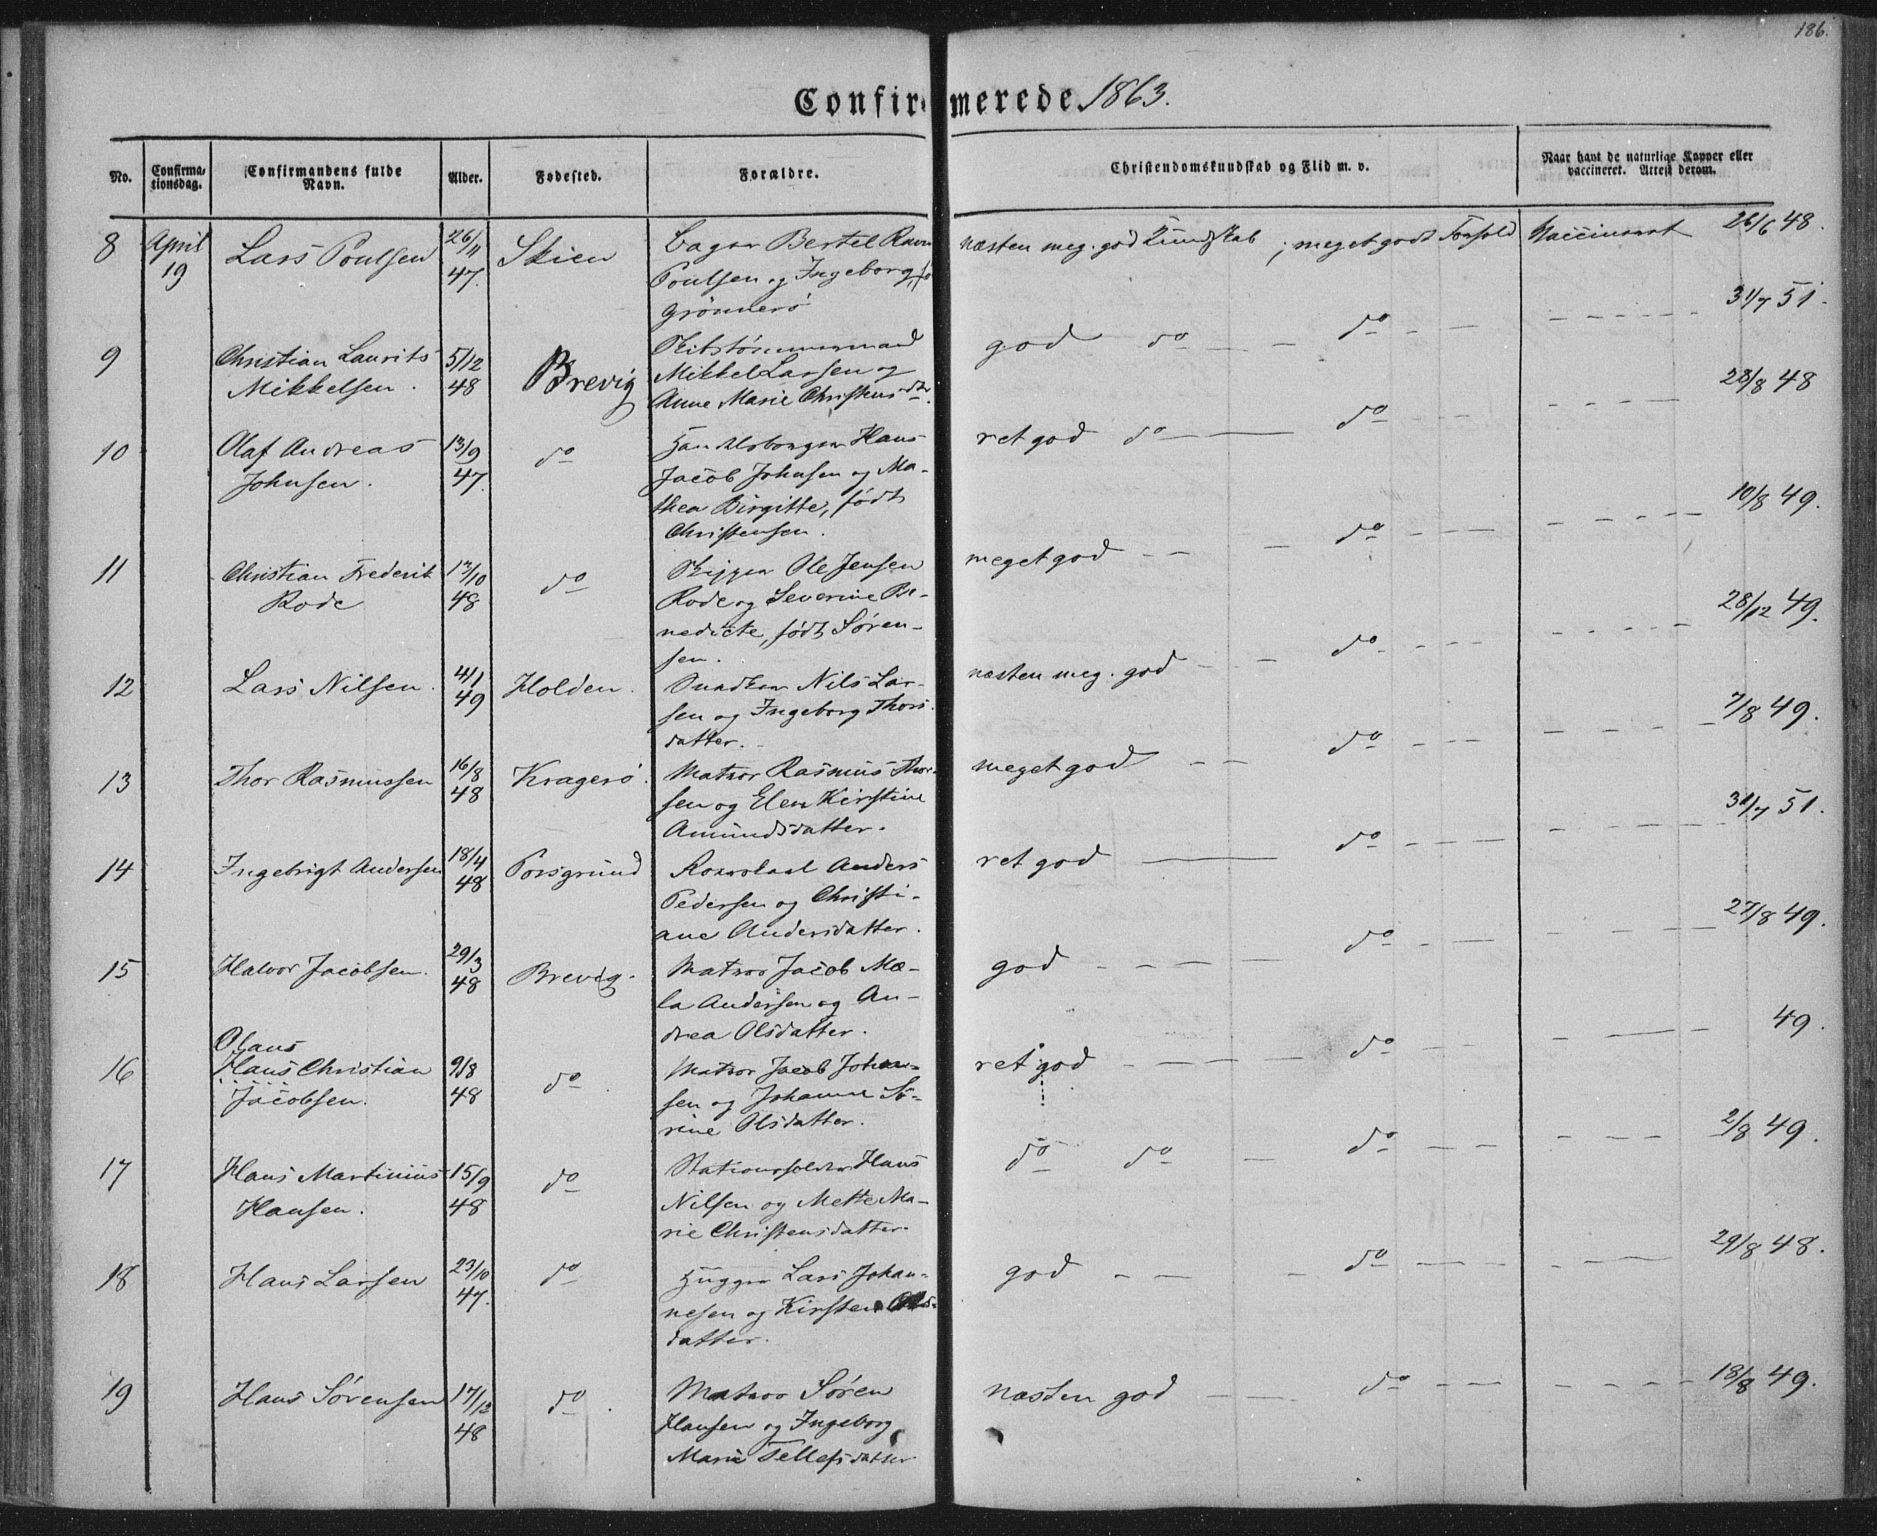 186.
Confirmerede 1863.
No. Confirma-tionsdag. Confirmandens fulde Navn. Alder. Fødested. Forældre. Christendomskundskab og Flid m. v. Naar havt de naturlige Kopper eller vaccineret. Attest derom.
8 April 19 Lars Poulsen 26/11 47. Skien Bager Bertel Ravn
Poulsen og Ingeborg, fø
Grønnerö næsten meg. god Kundskab; meget godt Forhold Vaccineret 26/6 48.
9 Christian Laurits
Mikkelsen. 5/12 48 Brevig Skibstømmermand
Mikkel Larsen og
Anne Marie Christensdtr. god do do 31/7 51.
10 Olaf Andreas
Johnsen. 13/9 47. do Handelsborger Hans
Jacob Johnsen og Ma-
thea Birgitte, født
Christensen. ret god do do 28/8 48
11 Christian Frederik
Rode 12/10 48 do Skipper Ole Jensen
Rode og Severine Be-
nedicte, født Søren-
sen. meget god do 10/8 49.
12 Lars Nilsen. 4/1 49 Holden. Snedker Nils Lar-
sen og Ingeborg Thors-
datter. næsten meg. god do 28/12 49.
13 Thor Rasmussen 16/8 48 Kragerö. Matros Rasmus Thor-
sen og Elen Kirstine
Amundsdatter. meget god do 7/8 49.
14 Ingebrigt Andersen 18/4 48 Porsgrund Anders
Pedersen og Christi-
ane Andersdatter. ret god do 31/7 51.
15 Halvor Jacobsen. 29/3 48 Brevig. Matros Jacob Mæ-
la Andersen og An-
drea Olsdatter. god do 27/8 49.
16 Olaus
Hans Christian
Jacobsen. 9/8 48 do. Matros Jacob Johan-
sen og Johanne Sö-
rine Olsdatter. ret god do 49.
17 Hans Martinius
Hansen. 15/9 48 do Stationsholder Hans
Nilsen og Mette Ma-
rie Christensdatter. do do do 2/8 49.
18 Hans Larsen 23/10 47. do Hugger Lars Johan-
nesen og Kirsten
datter. god do 29/8 48.
19 Hans Sørensen 17/12 48 do. Matros Sören
Hansen og Ingeborg
Marie Tellefsdatter næsten god do 18/8 49.